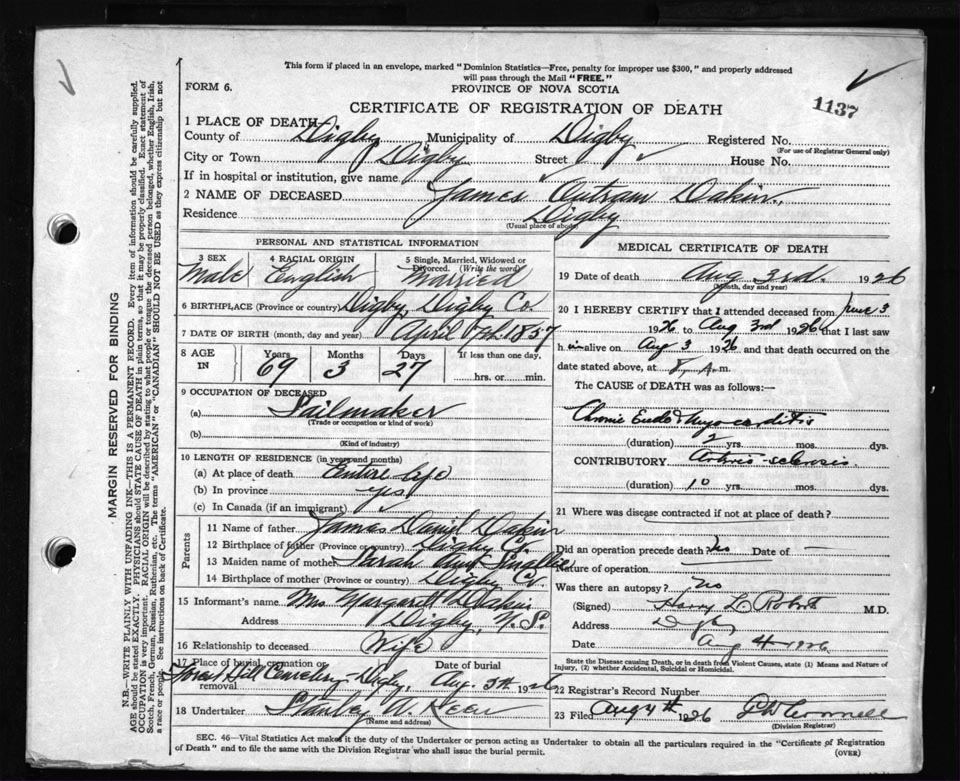 This form if placed in an envelope, marked "Dominion Statistics—Free, penalty for improper use $300," and properly addressed
will pass through the Mail "FREE."
FORM 6.
PROVINCE OF NOVA SCOTIA
CERTIFICATE OF REGISTRATION OF DEATH
1137
1 PLACE OF DEATH
County of Digby Municipality of Digby Registered No.
(For use of Registrar General only)
City or Town Digby Street House No.
If in hospital or institution, give name
2 NAME OF DECEASED James Outram Dakin
Residence Digby
(Usual place of abode)
PERSONAL AND STATISTICAL INFORMATION
3 SEX 4 RACIAL ORIGIN 5 Single, Married, Widowed or
Divorced. (Write the word)
Male English Married
6 BIRTHPLACE (Province or country) Digby, Digby Co.
7 DATE OF BIRTH (month, day and year) April 7th. 1857
8 AGE IN Years Months Days If less than one day,
69 3 27 hrs. or min.
9 OCCUPATION OF DECEASED
(a) Sailmaker
(Trade or occupation or kind of work)
(b)
(Kind of industry)
10 LENGTH OF RESIDENCE (in years and months)
(a) At place of death Entire life
(b) In province yes
(c) In Canada (if an immigrant)
Parents
11 Name of father James Daniel Dakin
12 Birthplace of father (Province or country) Digby Co.
13 Maiden name of mother Sarah Ann Smallie
14 Birthplace of mother (Province or country) Digby Co.
15 Informant's name Mrs Margaret Dakin
Address Digby, N.S.
16 Relationship to deceased Wife
17 Place of burial, cremation or Date of burial
removal Forest Hill Cemetery- Digby, Aug. 5th 1926
18 Undertaker Stanley W. Keen
(Name and address)
MEDICAL CERTIFICATE OF DEATH
19 Date of death Aug 3rd. 1926
(Month, day and year)
20 I HEREBY CERTIFY that I attended deceased from June 3
1926 to Aug 3rd 1926 that I last saw
him alive on Aug 3 1926 and that death occurred on the
date stated above, at m.
The CAUSE of DEATH was as follows:—
Chronic Endo & Myocarditis
(duration) 2 yrs. mos. dys.
CONTRIBUTORY Arterio-sclerosis.
(duration) 10 yrs. mos. dys.
21 Where was disease contracted if not at place of death?
Did an operation precede death? Date of —
Nature of operation
Was there an autopsy? No
(Signed) Harry L. M.D.
Address Digby
Date Aug 4 1926
State the Disease causing Death, or in death from Violent Causes, state (1) Means and Nature of
Injury, (2) whether Accidental, Suicidal or Homicidal.
22 Registrar's Record Number
23 Filed Aug 4th 1926
(Division Registrar)
SEC. 46—Vital Statistics Act makes it the duty of the Undertaker or person acting as Undertaker to obtain all the particulars required in the "Certificate of Registration
of Death" and to file the same with the Division Registrar who shall issue the burial permit.
(OVER)
MARGIN RESERVED FOR BINDING
N.B.—WRITE PLAINLY WITH UNFADING INK—THIS IS A PERMANENT RECORD. Every item of information should be carefully supplied.
AGE should be stated EXACTLY. PHYSICIANS should STATE CAUSE OF DEATH in plain terms, so that it may be properly classified. Exact statement of
OCCUPATION is very important. RACIAL ORIGIN will be described by stating to what people or tongue the deceased person belonged, whether English, Irish,
Scotch, French, German, Russian, Ruthenian, etc. The terms "AMERICAN" or "CANADIAN" SHOULD NOT BE USED as they express citizenship but not
a race or people. See instructions on back of Certificate.